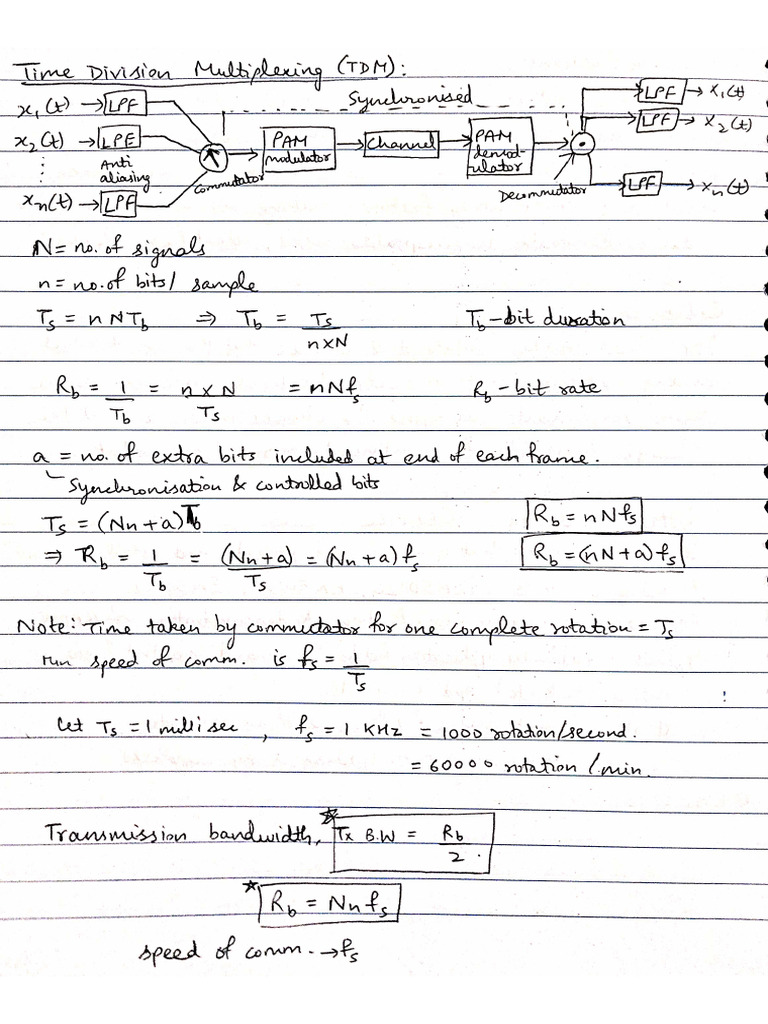 Time Division Multiplexing (TDM):
x₁(t) → LPF
x₂(t) → LPF
Anti aliasing
⋮
xₙ(t) → LPF
commutator
Synchronised
PAM modulator
Channel
PAM demodulator
Decommutator
LPF → x₁(t)
LPF → x₂(t)
LPF → xₙ(t)
N = no. of signals
n = no. of bits / sample
Ts = n N Tb ⇒ Tb = Ts / n×N    Tb - bit duration
Rb = 1/Tb = n × N / Ts = nNfs    Rb - bit rate
a = no. of extra bits included at end of each frame.
Synchronisation & controlled bits
Ts = (Nn + a) Tb    Rb = nNfs
⇒ Rb = 1/Tb = (Nn + a)/Ts = (Nn + a) fs    Rb = (nN + a) fs
Note: Time taken by commutator for one complete rotation = Ts
run speed of comm. is fs = 1/Ts
Let Ts = 1 milli sec, fs = 1 KHz = 1000 rotation/second.
= 60000 rotation /.min.
Transmission bandwidth, Tx B.W = Rb/2.
Rb = Nn fs
speed of comm. → fs